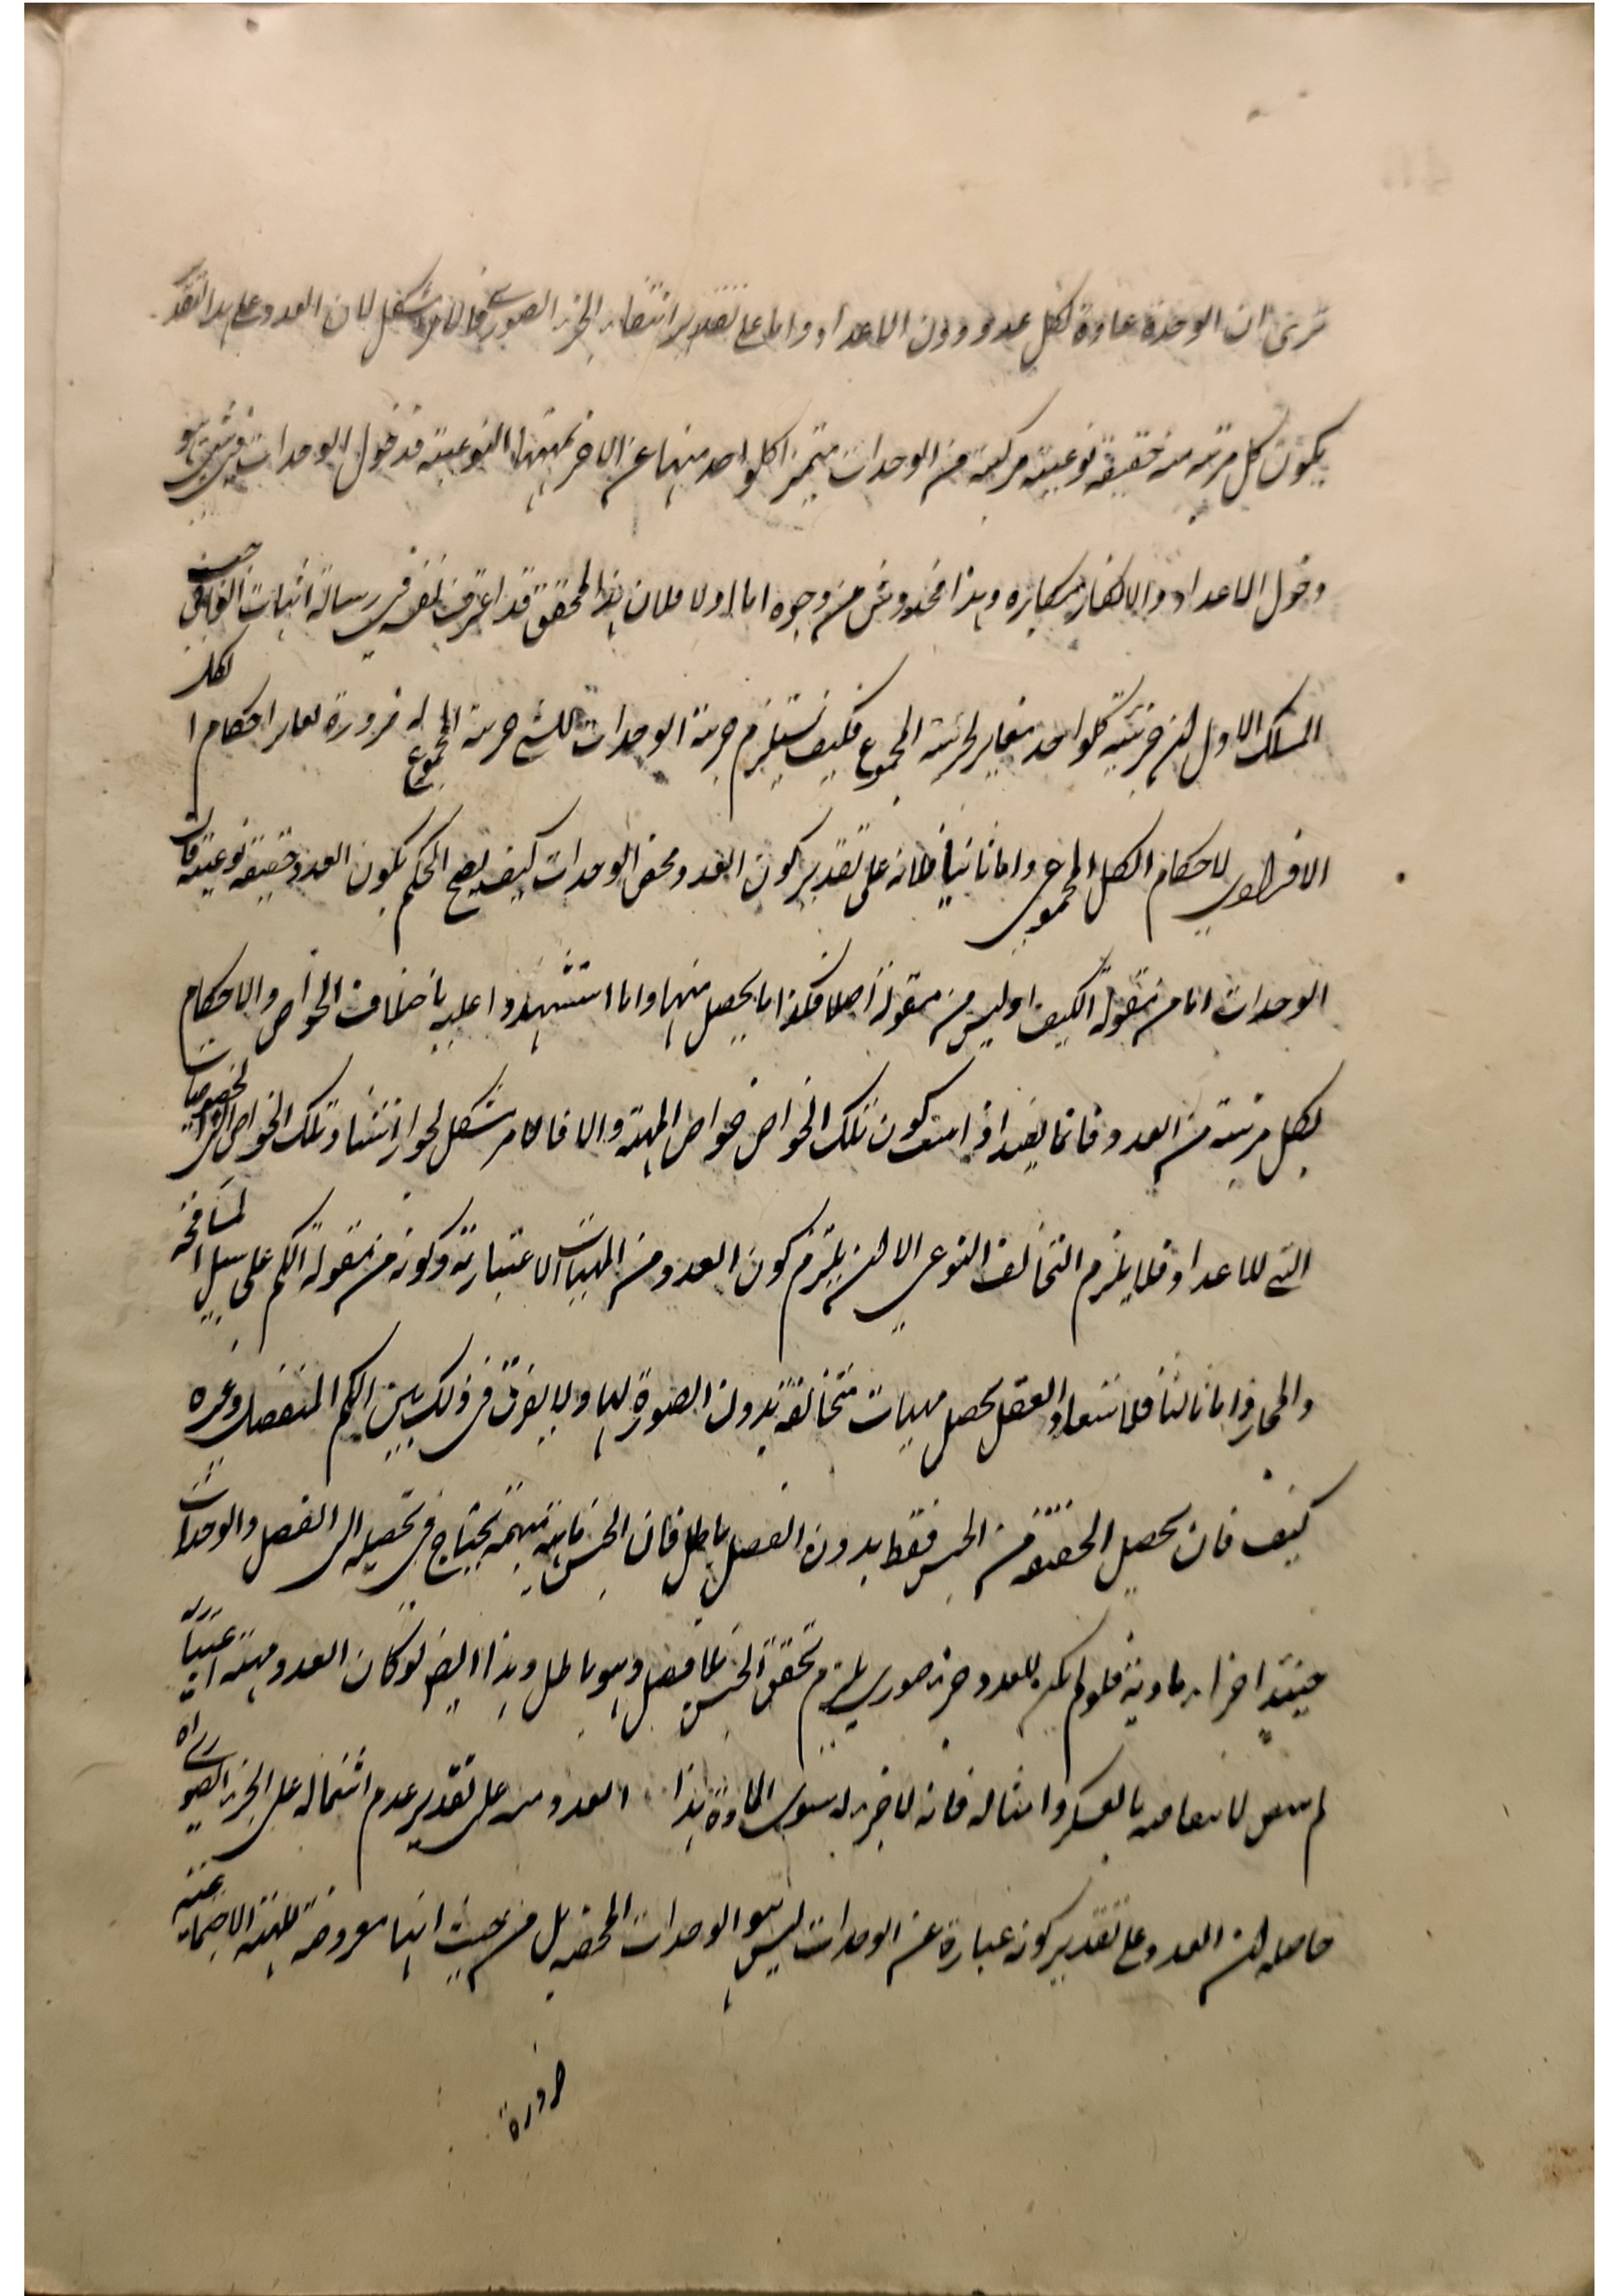 ترى ان الوحدة عادة لكل عدد ودون الاعداد واما على تقدير انتفاء الجزء الصورى فالامر مشكل لان العدد على هذا التقدير
يكون كل مرتبة منه حقيقة نوعية مركبة من الوحدات متميزا كلواحد منها عن الاخر بمهيتها النوعية فدخول الوحدات فى شئ هو
دخول الاعداد والانكار مكابره وهذا مخدوش من وجوه اما اولا فلان هذا المحقق قد اعترف بنفسه فى رسالة اثبات الواجب فى حيث
المسلك الاول ان جزئية كلواحد مغاير لجزئية المجموع فكيف تستلزم جزئية الوحدات للشئ جزئية المجموع له ضرورة تغاير احكام الكل
الافرادى لاحكام الكل المجموعى واما ثانيا فلانه على تقدير كون العدد محض الوحدات كيف يصح الحكم بكون العدد حقيقة نوعية فان
الوحدات اما من مقولة الكيف او ليس من مقولة اصلا فكذا ما يحصل منها واما استشهدوا عليه باختلاف الخواص والاحكام
لكل مرتبة من العدد فانما يفيد اذا كون تلك الخواص خواص المهية والا فالامر مشكل لجواز استناد تلك الخواص الى الخصوصيات
التى للاعداد فلا يلزم التخالف النوعى الا ان يلتزم كون العدد من المهيات الاعتبارية وكونه من مقولة الكم على سبيل المسامحة
والمجاز واما ثالثا فلاستبعاد العقل تحصل مهيات متخالفة بدون الصورة لها ولا يفرق فى ذلك بين الكم المنفصل وغيره
كيف فان تحصيل الحقيقة من الجنس فقط بدون الفصل باطل فان الجنس ماهية مبهمة تحتاج فى تحصيله الى الفصل والوحدات
حينئذ اجزاء مادية فلو لم يكن للعدد جزء صورى يلزم تحقق الجنس بلا فصل وهو باطل وهذا ايضا لو كان العدد مهية اعتبارية
لم بالعسكر وامثاله فانه لا جزء له سوى المادة هذا العدد على تقدير عدم اشتماله على الجزء الصورى
حاصله ان العدد على تقدير كونه عبارة عن الوحدات ليس هو الوحدات المحضة بل من حيث انها معروضة للهيئة الاجتماعية
ضرورة